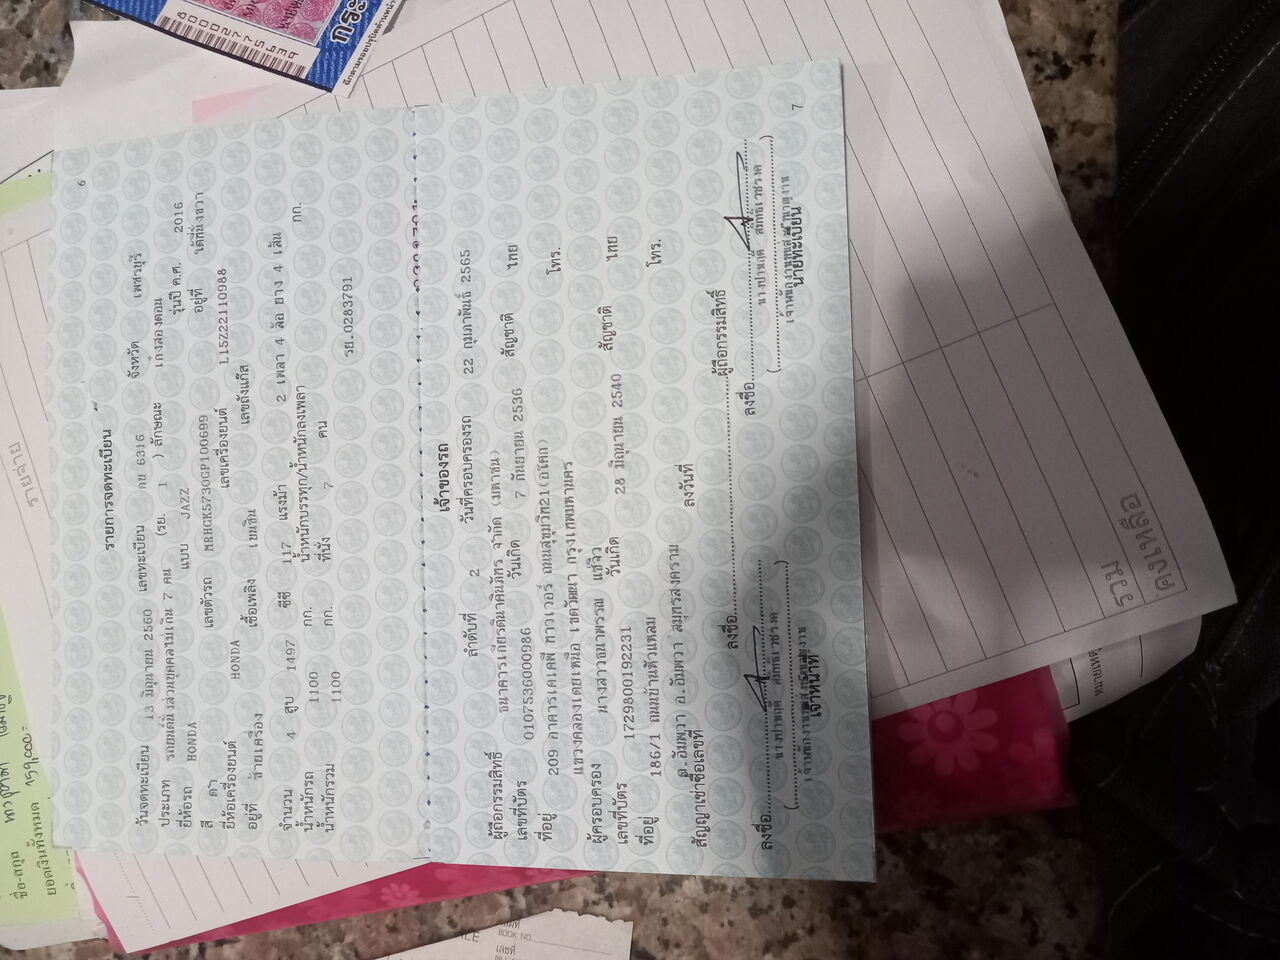 6
รายการจดทะเบียน
วันจดทะเบียน 13 มิถุนายน 2560 เลขทะเบียน กย 6316 จังหวัด เพชรบุรี
ประเภท รถยนต์นั่งส่วนบุคคลไม่เกิน 7 คน (รย. 1 ) ลักษณะ เก๋งสองตอน
ยี่ห้อรถ HONDA แบบ JAZZ รุ่นปี ค.ศ. 2016
สี ดำ เลขตัวรถ MRHGK5730GP100699 อยู่ที่ ใต้ที่นั่งขวา
ยี่ห้อเครื่องยนต์ HONDA เลขเครื่องยนต์ L15Z22110988
อยู่ที่ ซ้ายเครื่อง เชื้อเพลิง เบนซิน เลขถังแก๊ส
จำนวน 4 สูบ 1497 ซีซี 117 แรงม้า 2 เพลา 4 ล้อ ยาง 4 เส้น
น้ำหนักรถ 1100 กก. น้ำหนักบรรทุก/น้ำหนักลงเพลา กก.
น้ำหนักรวม 1100 กก. ที่นั่ง 7 คน
รย.0283791
เจ้าของรถ
ลำดับที่ 2 วันที่ครอบครองรถ 22 กุมภาพันธ์ 2565
ผู้ถือกรรมสิทธิ์ ธนาคารเกียรตินาคินภัทร จำกัด (มหาชน)
เลขที่บัตร 0107536000986 วันเกิด 7 กันยายน 2536 สัญชาติ ไทย
ที่อยู่ 209 อาคารเคเคพี ทาวเวอร์ ถนนสุขุมวิท21(อโศก) โทร.
แขวงคลองเตยเหนือ เขตวัฒนา กรุงเทพมหานคร
ผู้ครอบครอง นางสาวธนาพรรณ แซ่จิว
เลขที่บัตร 1729800192231 วันเกิด 28 มิถุนายน 2540 สัญชาติ ไทย
ที่อยู่ 186/1 ถนนบ้านหัวแหลม โทร.
ต.อัมพวา อ.อัมพวา สมุทรสงคราม
สัญญาเช่าซื้อเลขที่ ลงวันที่
ลงชื่อ ผู้ถือกรรมสิทธิ์
ลงชื่อ ลงชื่อ
เจ้าหน้าที่ นายทะเบียน
7
ชื่อ-สกุล
ยอดเงินทั้งหมด 159,000.-
รายจ่าย
รวม
คงเหลือ
หมายเหตุ
BOOK NO.
เลขที่